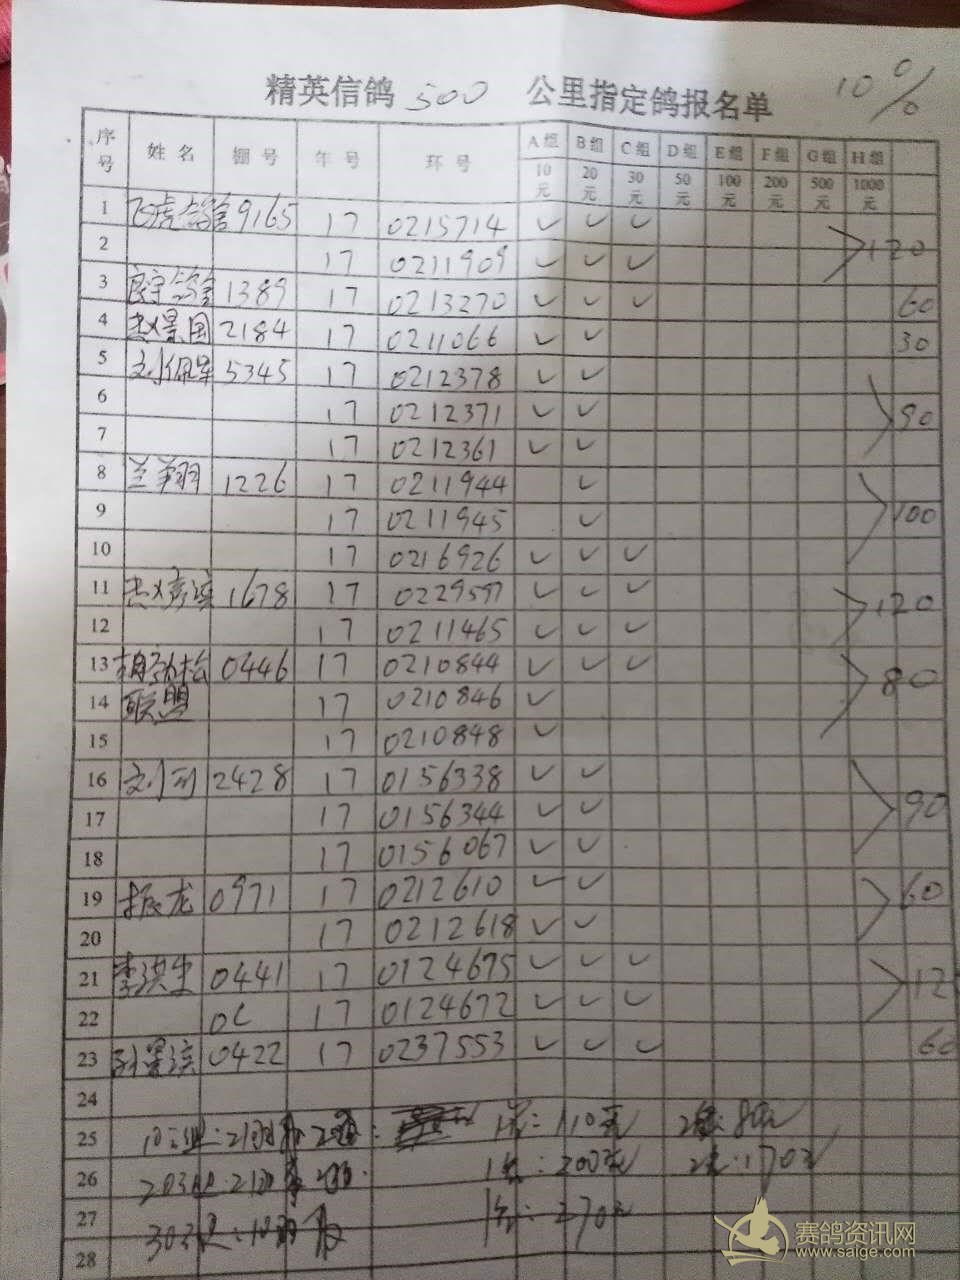 精英信鸽 500 公里指定鸽报名单 10%
序号 姓名 棚号 年号 环号 A组 B组 C组 D组 E组 F组 G组 H组
10元 20元 30元 50元 100元 200元 500元 1000元
1 飞虎鸽舍 9165 17 0215714 ✓ ✓ ✓
2 17 0211909 ✓ ✓ ✓ 120
3 鸽舍 1389 17 0213270 ✓ ✓ ✓ 60
4 赵景国 2184 17 0211066 ✓ ✓ 30
5 刘佩军 5345 17 0212378 ✓ ✓
6 17 0212371 ✓ ✓ 90
7 17 0212361 ✓ ✓
8 兰翔羽 1226 17 0211944 ✓
9 17 0211945 ✓ 100
10 17 0216926 ✓ ✓ ✓
11 1678 17 0229597 ✓ ✓ ✓ 120
12 17 0211465 ✓ ✓ ✓
13 0446 17 0210844 ✓ ✓ ✓ 80
14 联盟 17 0210846 ✓
15 17 0210848 ✓
16 刘 2428 17 0156338 ✓ ✓
17 17 0156344 ✓ ✓ 90
18 17 0156067 ✓ ✓
19 振龙 0971 17 0212610 ✓ ✓ 60
20 17 0212618 ✓ ✓
21 李洪生 0441 17 0124675 ✓ ✓ ✓ 12
22 17 0124672 ✓ ✓ ✓
23 0422 17 0237553 ✓ ✓ ✓ 60
24
25
26
27
28
赛鸽资讯网
www.saige.com